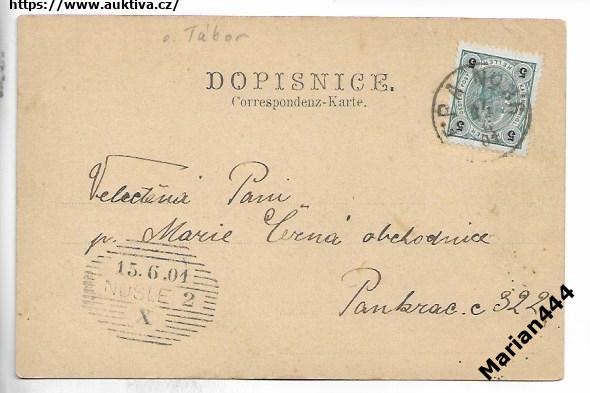 https://www.auktiva.cz/
o. Tábor
DOPISNICE.
Correspondenz-Karte.
5 5
5 5
Velectěná Paní
p. Marie Černá obchodnice
Pankrac. c 322
15.6.01
NUSLE 2
X
Marian444